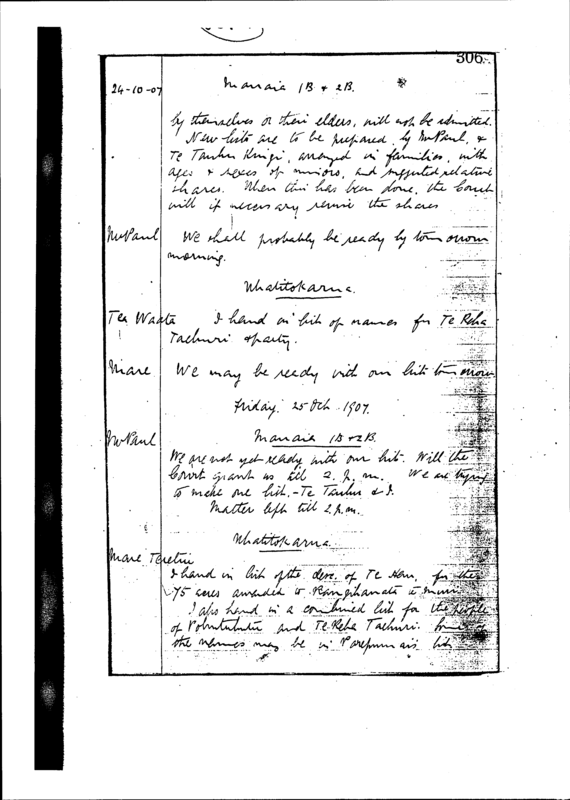 306.
24-10-07 Manaia 1B & 2B.
by themselves or their elders, will not be admitted.
New lists are to be prepared by Mr Paul, &
Te Tauhu Kingi, arranged in families, with
ages & sexes of minors, and suggested relative
shares. When this has been done, the Court
will if necessary revise the shares
Mr Paul We shall probably be ready by tomorrow
morning.
Whatitokarua.
Tea Waata I hand in list of names for Te Reha
Taehuri & party.
Mare We may be ready with our list tomorrow
Friday. 25 Oct. 1907.
Mr Paul Manaia 1B & 2B.
We are not yet ready with our list. Will the
Court grant us till 2. p.m. We are trying
to make one list. - Te Tauhu & I.
Matter left till 2 p.m.
Whatitokarua.
Mare Teretiu
I hand in list of the desc. of Te Hau, for the
75 acres awarded to
I also hand in a combined list for the people
of and Te Reha Taehuri. Some of
the names may be in list